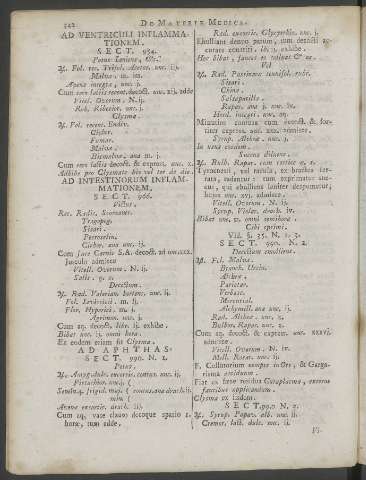 342 DE MATERIE MEDICA.
AD VENTRICULI INFLAMMA-
TIONEM.
SECT. 954.
Potus Leniens, &c.
♃. Fol. rec. Trifol. Acetos. unc. iij.
Malvæ. m. iii.
Avenæ integræ, unc. j.
Cum sero lactis recent. decoct. unc. xij. adde
Vitell. Ovorum. N. ij.
Rob. Ribesior. unc. j.
Clysma.
♃. Fol. recent. Endiv.
Cichor.
Fumar.
Malvæ.
Bismalvæ. ana m. j.
Cum sero lactis decoct. & exprest. unc. x.
Adhibe pro Clysmate bis vel ter de die.
AD INTESTINORUM INFLAM-
MATIONEM.
SECT. 966.
Victus.
Rec. Radic. Scorzoner.
Tragopog.
Sisari.
Petroselin.
Cichor. ana unc. ij.
Cum Jure Carnis S.A. decoct. ad unc.xxx.
Jusculo admisce
Vitell. Ovorum. N. ij.
Salis. q. s.
Decoctum.
♃. Rad. Valerian. hortens. unc. ij.
Fol. Linariæ. m. ij.
Flor. Hyperici. m. j.
Agrimon. unc. j.
Cum aq. decoct. libr. ij. exhibe.
Bibat unc. ij. omni hora.
Ex eodem etiam fit Clysma.
AD APHTHAS.
SECT. 990. N. 1.
Potus.
♃. Amygdalar. excortic. contus. unc. ij.
Pistachior. unc. j.
Semin. 4. frigid. maj.
min.
contus. ana drach. ij.
Avenæ excortic. drach. ij.
Cum aq. vase clauso decoque spatio 1.
horæ, tum adde,
Rad. excortic. Glycyrrhiz. unc. j.
Ebulliant denuo parum, tum decocti ac-
curate contriti, lib. ij. exhibe.
Hoc bibat, fauces et colluat & os.
Vel
♃. Rad. Parietariæ
Sisari.
Chinæ.
Salsaparill.
Raparum
Hord. integri. unc.
Minutim contusa cum decoct. & for-
titer express. unc. xxx. admisce,
Syrup. Altheæ. unc. j.
In usus eosdem
Succus Bilanæ.
♃. Bulb. Rapar. cum cortice q. s.
Tyrocnesti, vel radula, ex bractea for-
rata, raduntur: tum exprimatur suc-
cus, qui ebulliens leniter despumetur;
hujus unc. xvj. admisce
Vitell. Ovorum. N. ij.
Syrup. Violar. drach. iv.
Bibat unc. ß. omni semihora.
Cibi optimi.
Vid. §. 35. N. 1. 3.
SECT. 990. N. 2.
Decoctum emolliens.
♃. Fol. Malvæ.
Branch. Ursin.
Altheæ.
Parietar.
Verbasc.
Mercurial.
Alchymill. ana unc. ij.
Rad. Altheæ. unc. x.
Bulbor. Rapar. unc. x.
Cum aq. decoct. & express. unc. xxxvj.
admisce,
Vitell. Ovorum. N. iv.
Mell. Rosar. unc. ij.
F. Collutorium semper in Ore, & Garga-
risma assiduum.
Fiat ex hoc residuo Cataplasma, externis
faucibus applicandum.
Clysma ex iisdem.
SECT. 990. N. 3.
♃. Syrup. Papav. alb. unc. ij.
Cremor. lact. dulc. unc. ij.